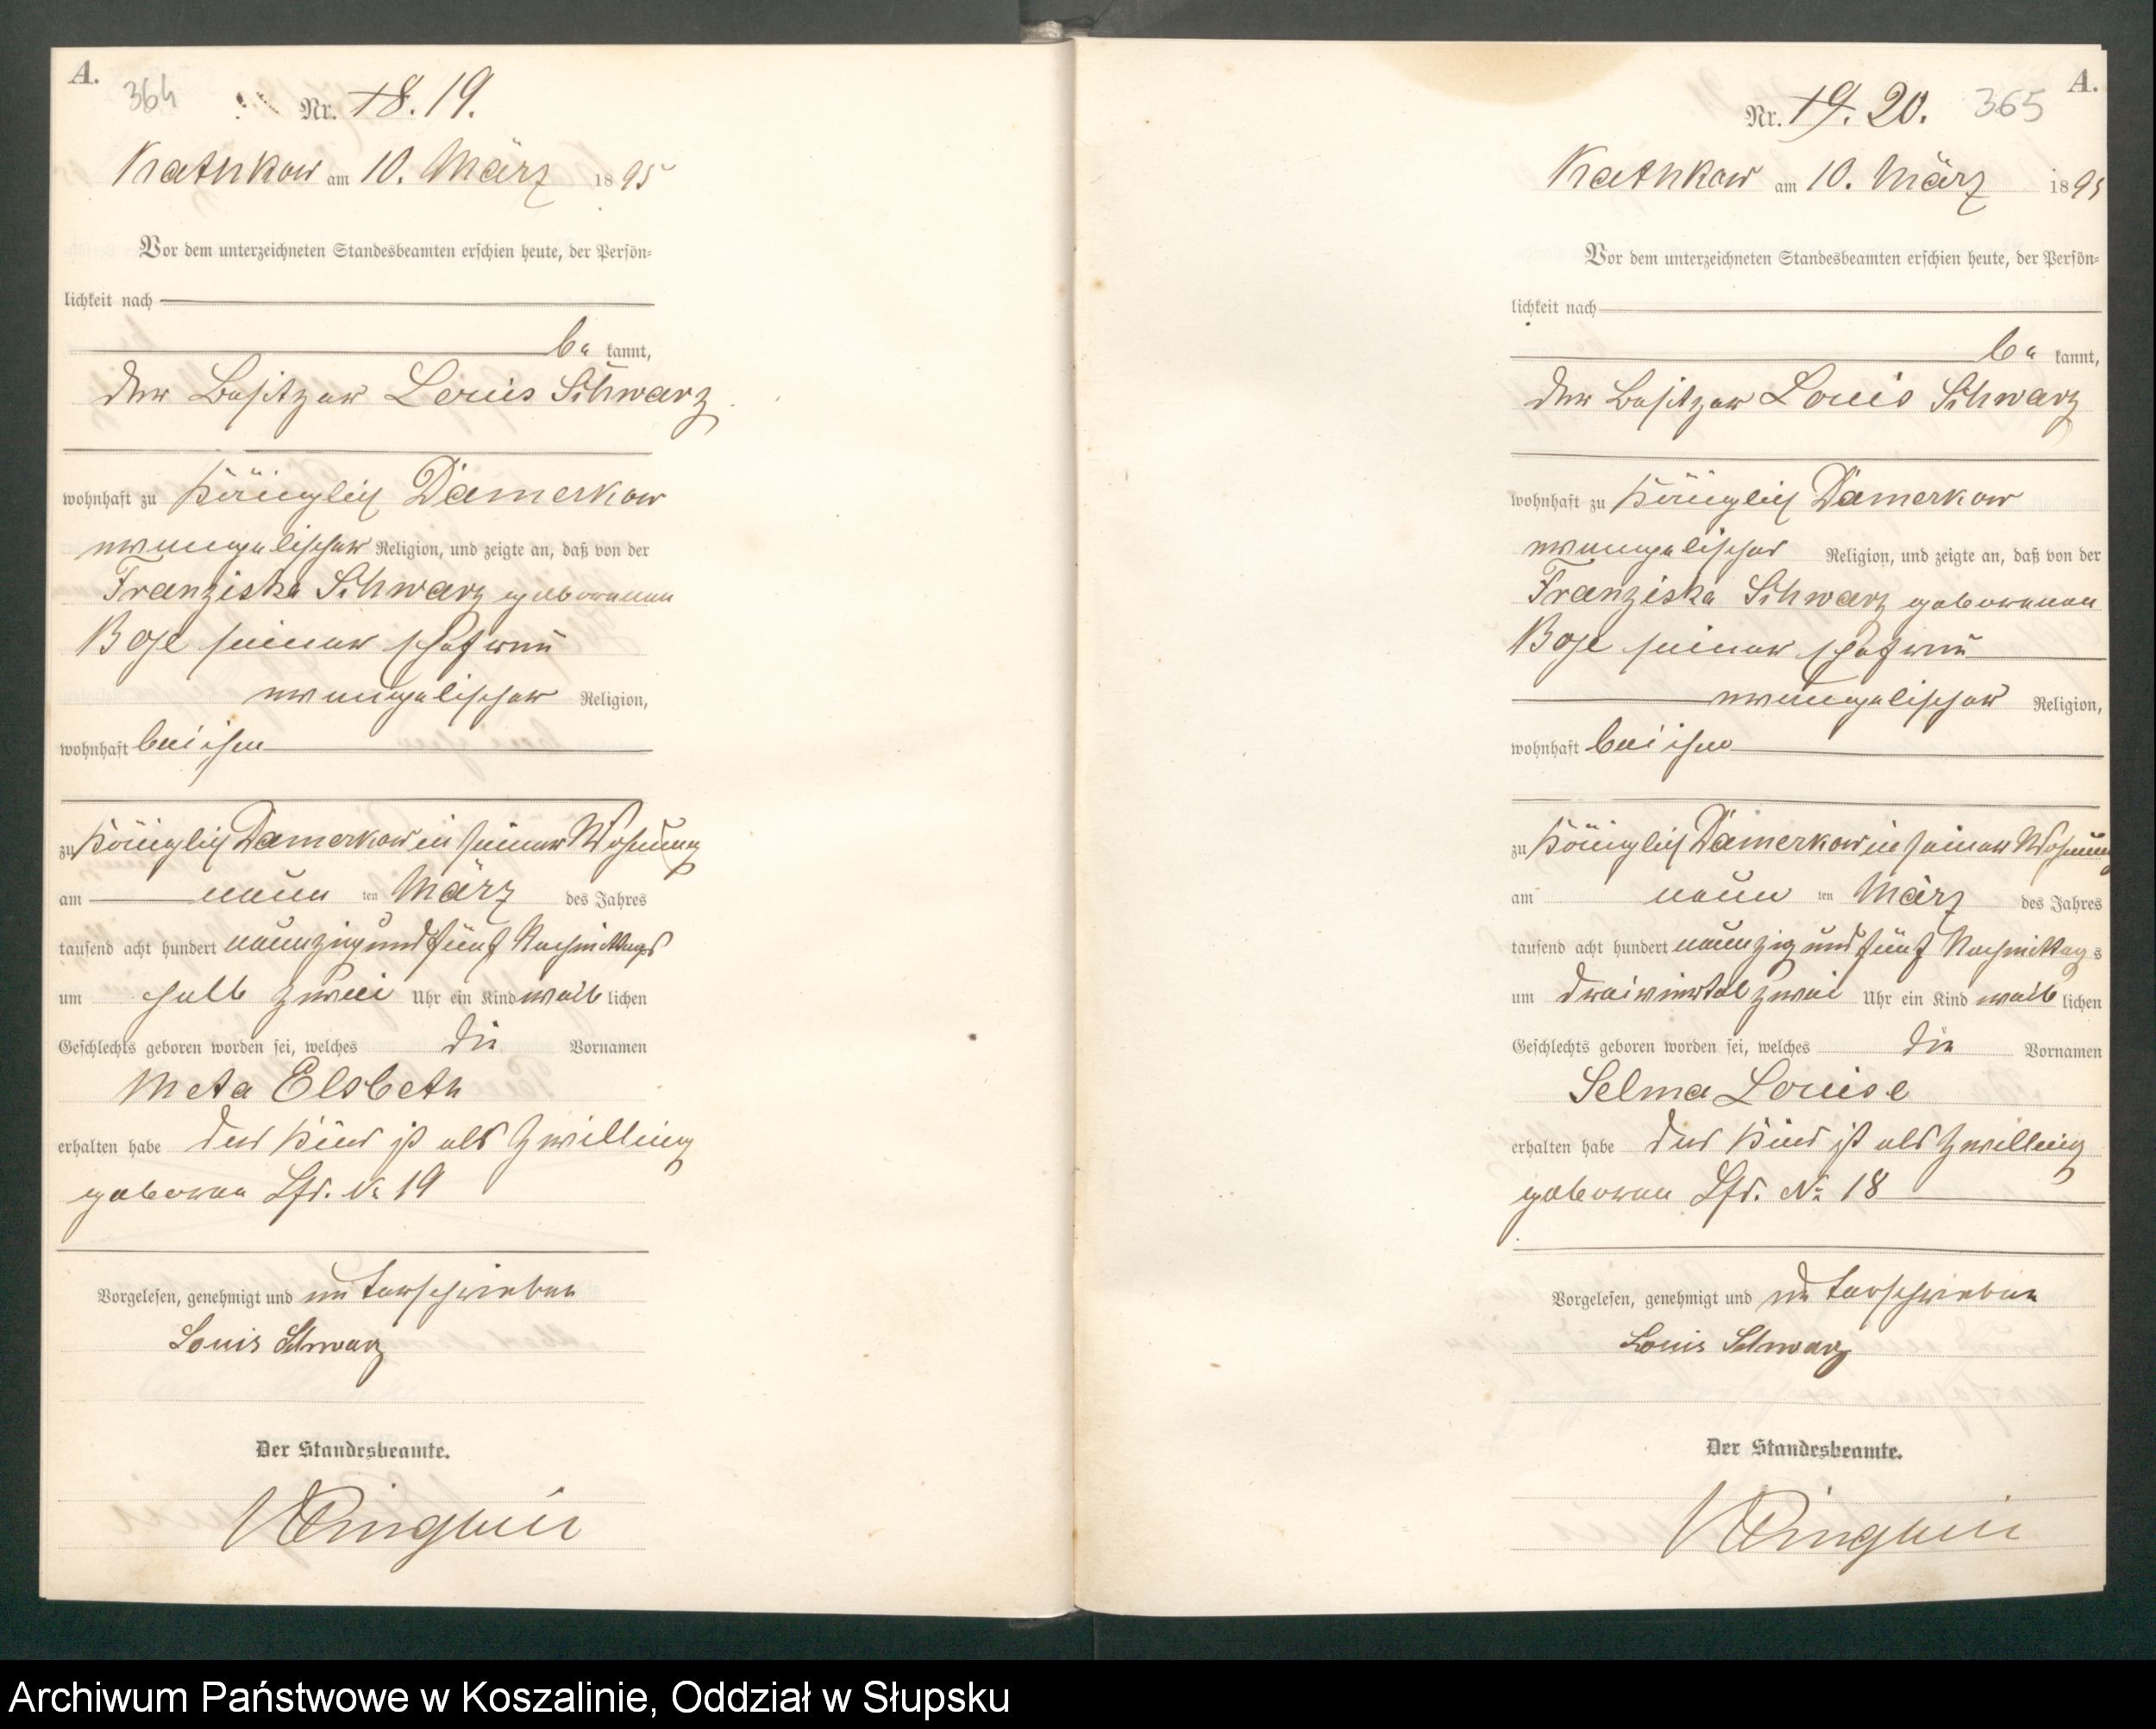 A.
364
Nr. 18. 19.
Kathkow am 10. März 1895
Vor dem unterzeichneten Standesbeamten erschien heute, der Persön-
lichkeit nach
be kannt,
der Besitzer Louis Schwarz
wohnhaft zu Königlich Damerkow
evangelischer Religion, und zeigte an, daß von der
Franziska Schwarz geborenen
Boje seiner Ehefrau
evangelischer Religion,
wohnhaft bei ihm
zu Königlich Damerkow in seiner Wohnung
am neun ten März des Jahres
tausend acht hundert neunzig und fünf Nachmittags
um halb zwei Uhr ein Kind weib lichen
Geschlechts geboren worden sei, welches die Vornamen
Meta Elsbeth
erhalten habe Das Kind ist als Zwilling
geboren Lfd. No 19
Vorgelesen, genehmigt und unterschrieben
Louis Schwarz
Der Standesbeamte.
A.
Nr. 19. 20. 365
Kathkow am 10. März 1895
Vor dem unterzeichneten Standesbeamten erschien heute, der Persön-
lichkeit nach
be kannt,
der Besitzer Louis Schwarz
wohnhaft zu Königlich Damerkow
evangelischer Religion, und zeigte an, daß von der
Franziska Schwarz geborenen
Boje seiner Ehefrau
evangelischer Religion,
wohnhaft bei ihm
zu Königlich Damerkow in seiner Wohnung
am neun ten März des Jahres
tausend acht hundert neunzig und fünf Nachmittags
um dreiviertel zwei Uhr ein Kind weib lichen
Geschlechts geboren worden sei, welches die Vornamen
Selma Louise
erhalten habe Das Kind ist als Zwilling
geboren Lfd. No 18
Vorgelesen, genehmigt und unterschrieben
Louis Schwarz
Der Standesbeamte.
Archiwum Państwowe w Koszalinie, Oddział w Słupsku